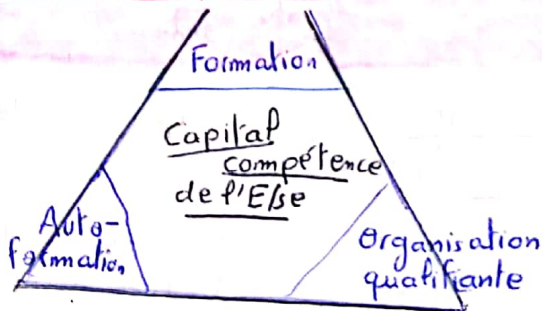 Formation
Capital
compétence
de l'E/se
Auto-
formation
Organisation
qualifiante